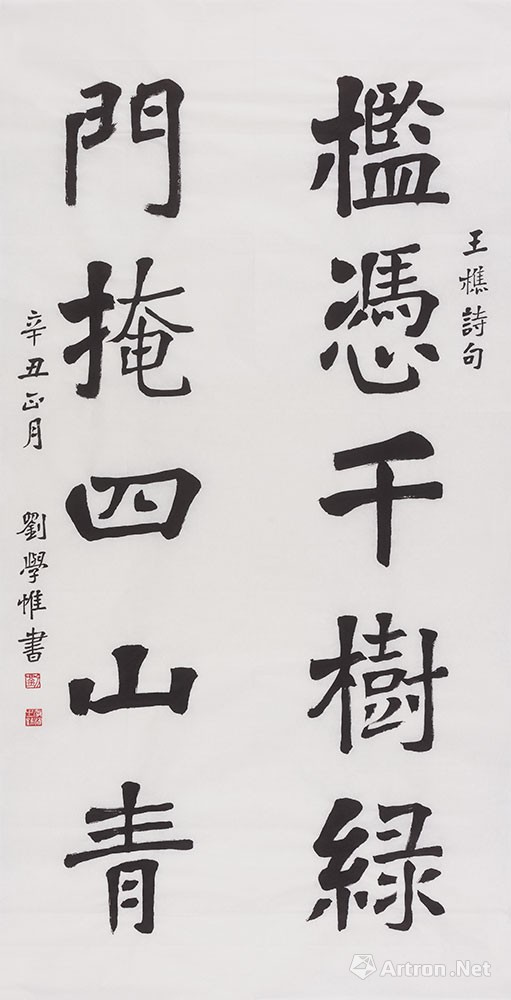 王樵詩句
檻憑千樹綠
門掩四山青
辛丑正月 劉學惟書
Artron.Net